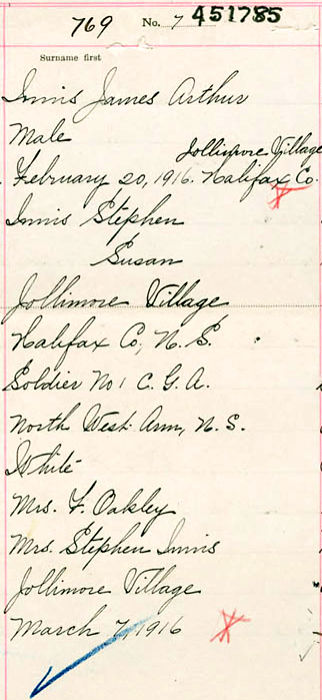 769 No. 7 451785
Surname first
Innis James Arthur
Male
Jollimore Village
February 20, 1916. Halifax Co.
Innis Stephen
Susan
Jollimore Village
Halifax Co, N. S.
Soldier No 1 C. G. A.
North West Arm, N. S.
White
Mrs. F. Oakley
Mrs. Stephen Innis
Jollimore Village
March 7, 1916